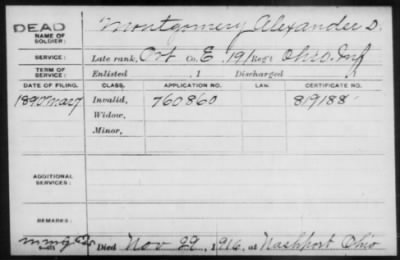 DEAD Montgomery, Alexander D.
NAME OF SOLDIER:
SERVICE: Late rank, Pvt Co. E, 191 Reg't Ohio Inf
TERM OF SERVICE: Enlisted , 1 Discharged
DATE OF FILING. CLASS. APPLICATION NO. LAW. CERTIFICATE NO.
1890 Mar 7 Invalid, 760860 819188
Widow,
Minor,
ADDITIONAL SERVICES:
REMARKS:
Died Nov 29, 1916, at Nashport Ohio